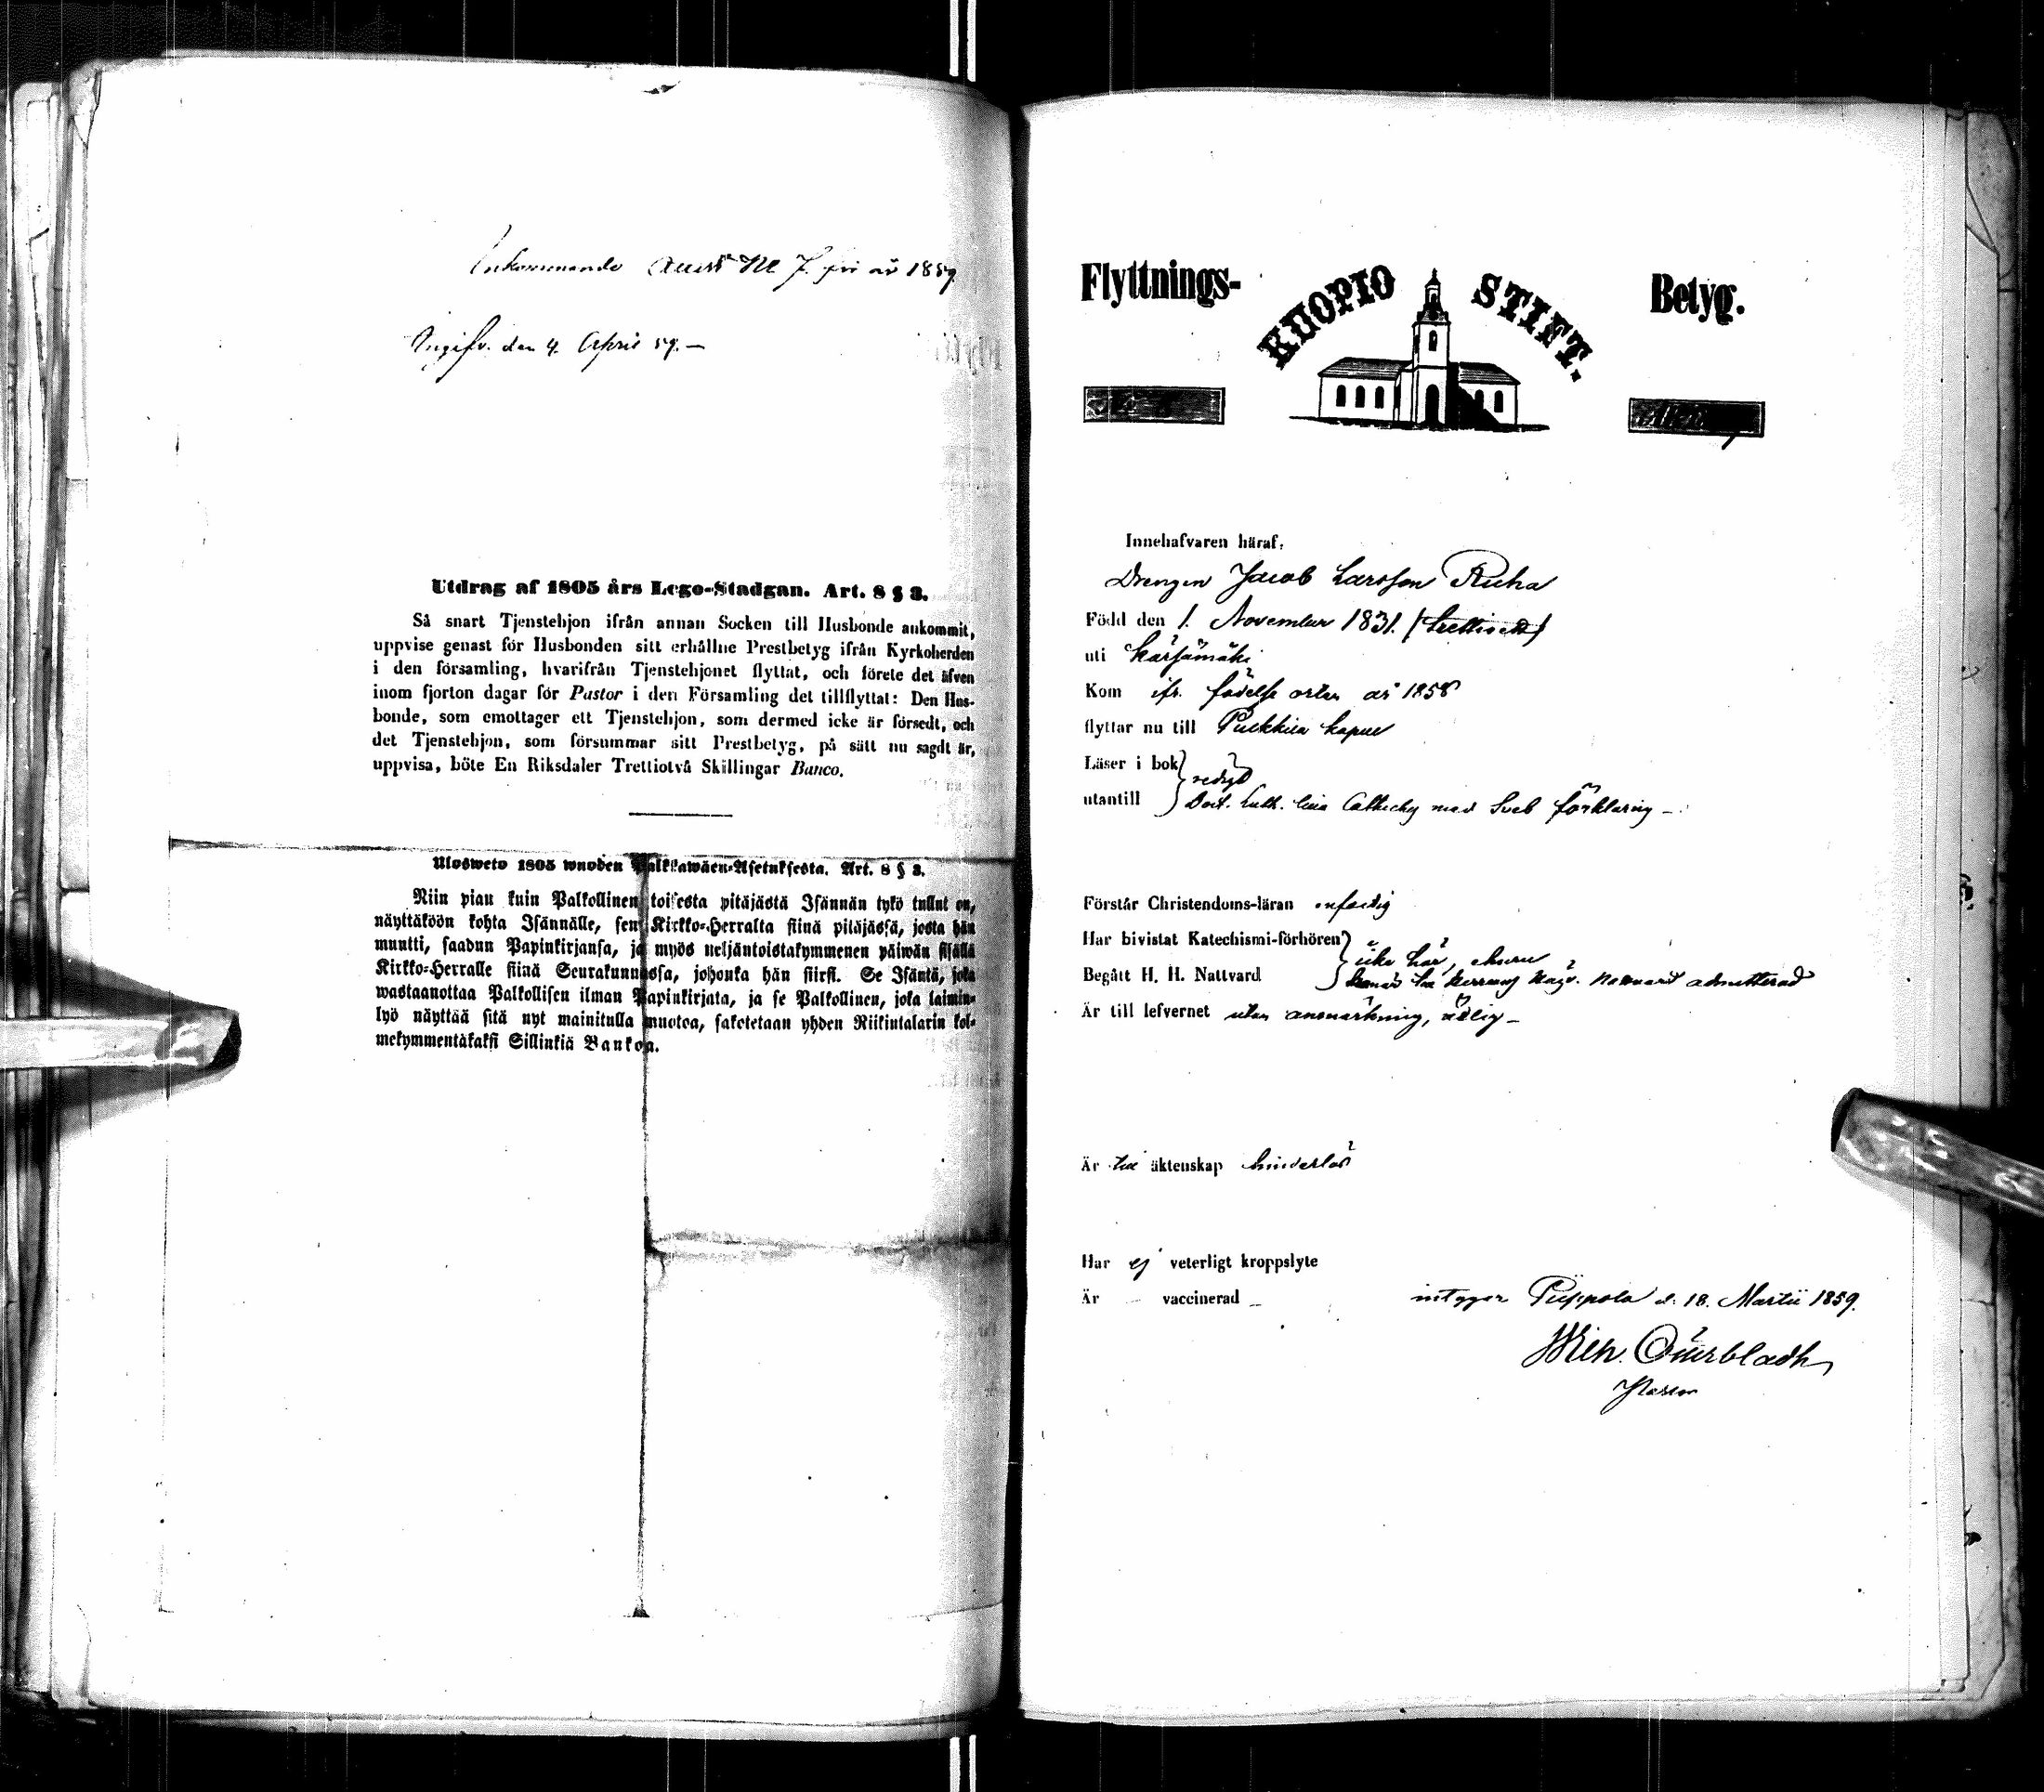 Inkommande attest No 7. för år 1859.
Ingifv. den 4. April 59.–
Utdrag af 1805 års Lego-Stadgan. Art. 8 § 3.
Så snart Tjenstehjon ifrån annan Socken till Husbonde ankommit,
uppvise genast för Husbonden sitt erhållne Prestbetyg ifrån Kyrkoherden
i den församling, hvarifrån Tjenstehjonet flyttat, och förete det äfven
inom fjorton dagar för Pastor i den Församling det tillflyttat: Den Hus-
bonde, som emottager ett Tjenstehjon, som dermed icke är försedt, och
det Tjenstehjon, som försummar sitt Prestbetyg, på sätt nu sagdt är,
uppvisa, böte En Riksdaler Trettiotvå Skillingar Banco.
Ulosweto 1805 wuoden Palkkawäen-Asetuksesta. Art. 8 § 3.
Niin pian kuin Palkollinen toisesta pitäjästä Isännän tykö tullut on,
näyttäköön kohta Isännälle, sen Kirkko-Herralta siinä pitäjässä, josta hän
muutti, saadun Papinkirjansa, ja myös neljäntoistakymmenen päiwän sisällä
Kirkko-Herralle siinä Seurakunnassa, johonka hän siirsi. Se Isäntä, joka
wastaanottaa Palkollisen ilman Papinkirjata, ja se Palkollinen, joka laimin-
lyö näyttää sitä nyt mainitulla muotoa, sakotetaan yhden Riikintalarin kol-
mekymmentäkaksi Sillinkiä Bankoa.
Flyttnings- KUOPIO STIFT. Betyg.
Innehafvaren häraf,
Drengen Jacob Larsson Ruha
Född den 1. November 1831. (trettioett)
uti Kärsämäki
Kom ifr. födelse orten år 1858
flyttar nu till Pulkkila kapell
Läser i bok
utantill Doct. Luth. lilla Catheches med Sveb. förklaring –
Förstår Christendoms-läran
Har bivistat Katechismi-förhören icke här,
Begått H. H. Nattvard Herrans Nattvard admitterad
Är till lefvernet utan anmärkning,
Är till äktenskap hinderlös
Har ej veterligt kroppslyte
Är – vaccinerad –
intygar Piippola d. 18. Martii 1859.
Pastor